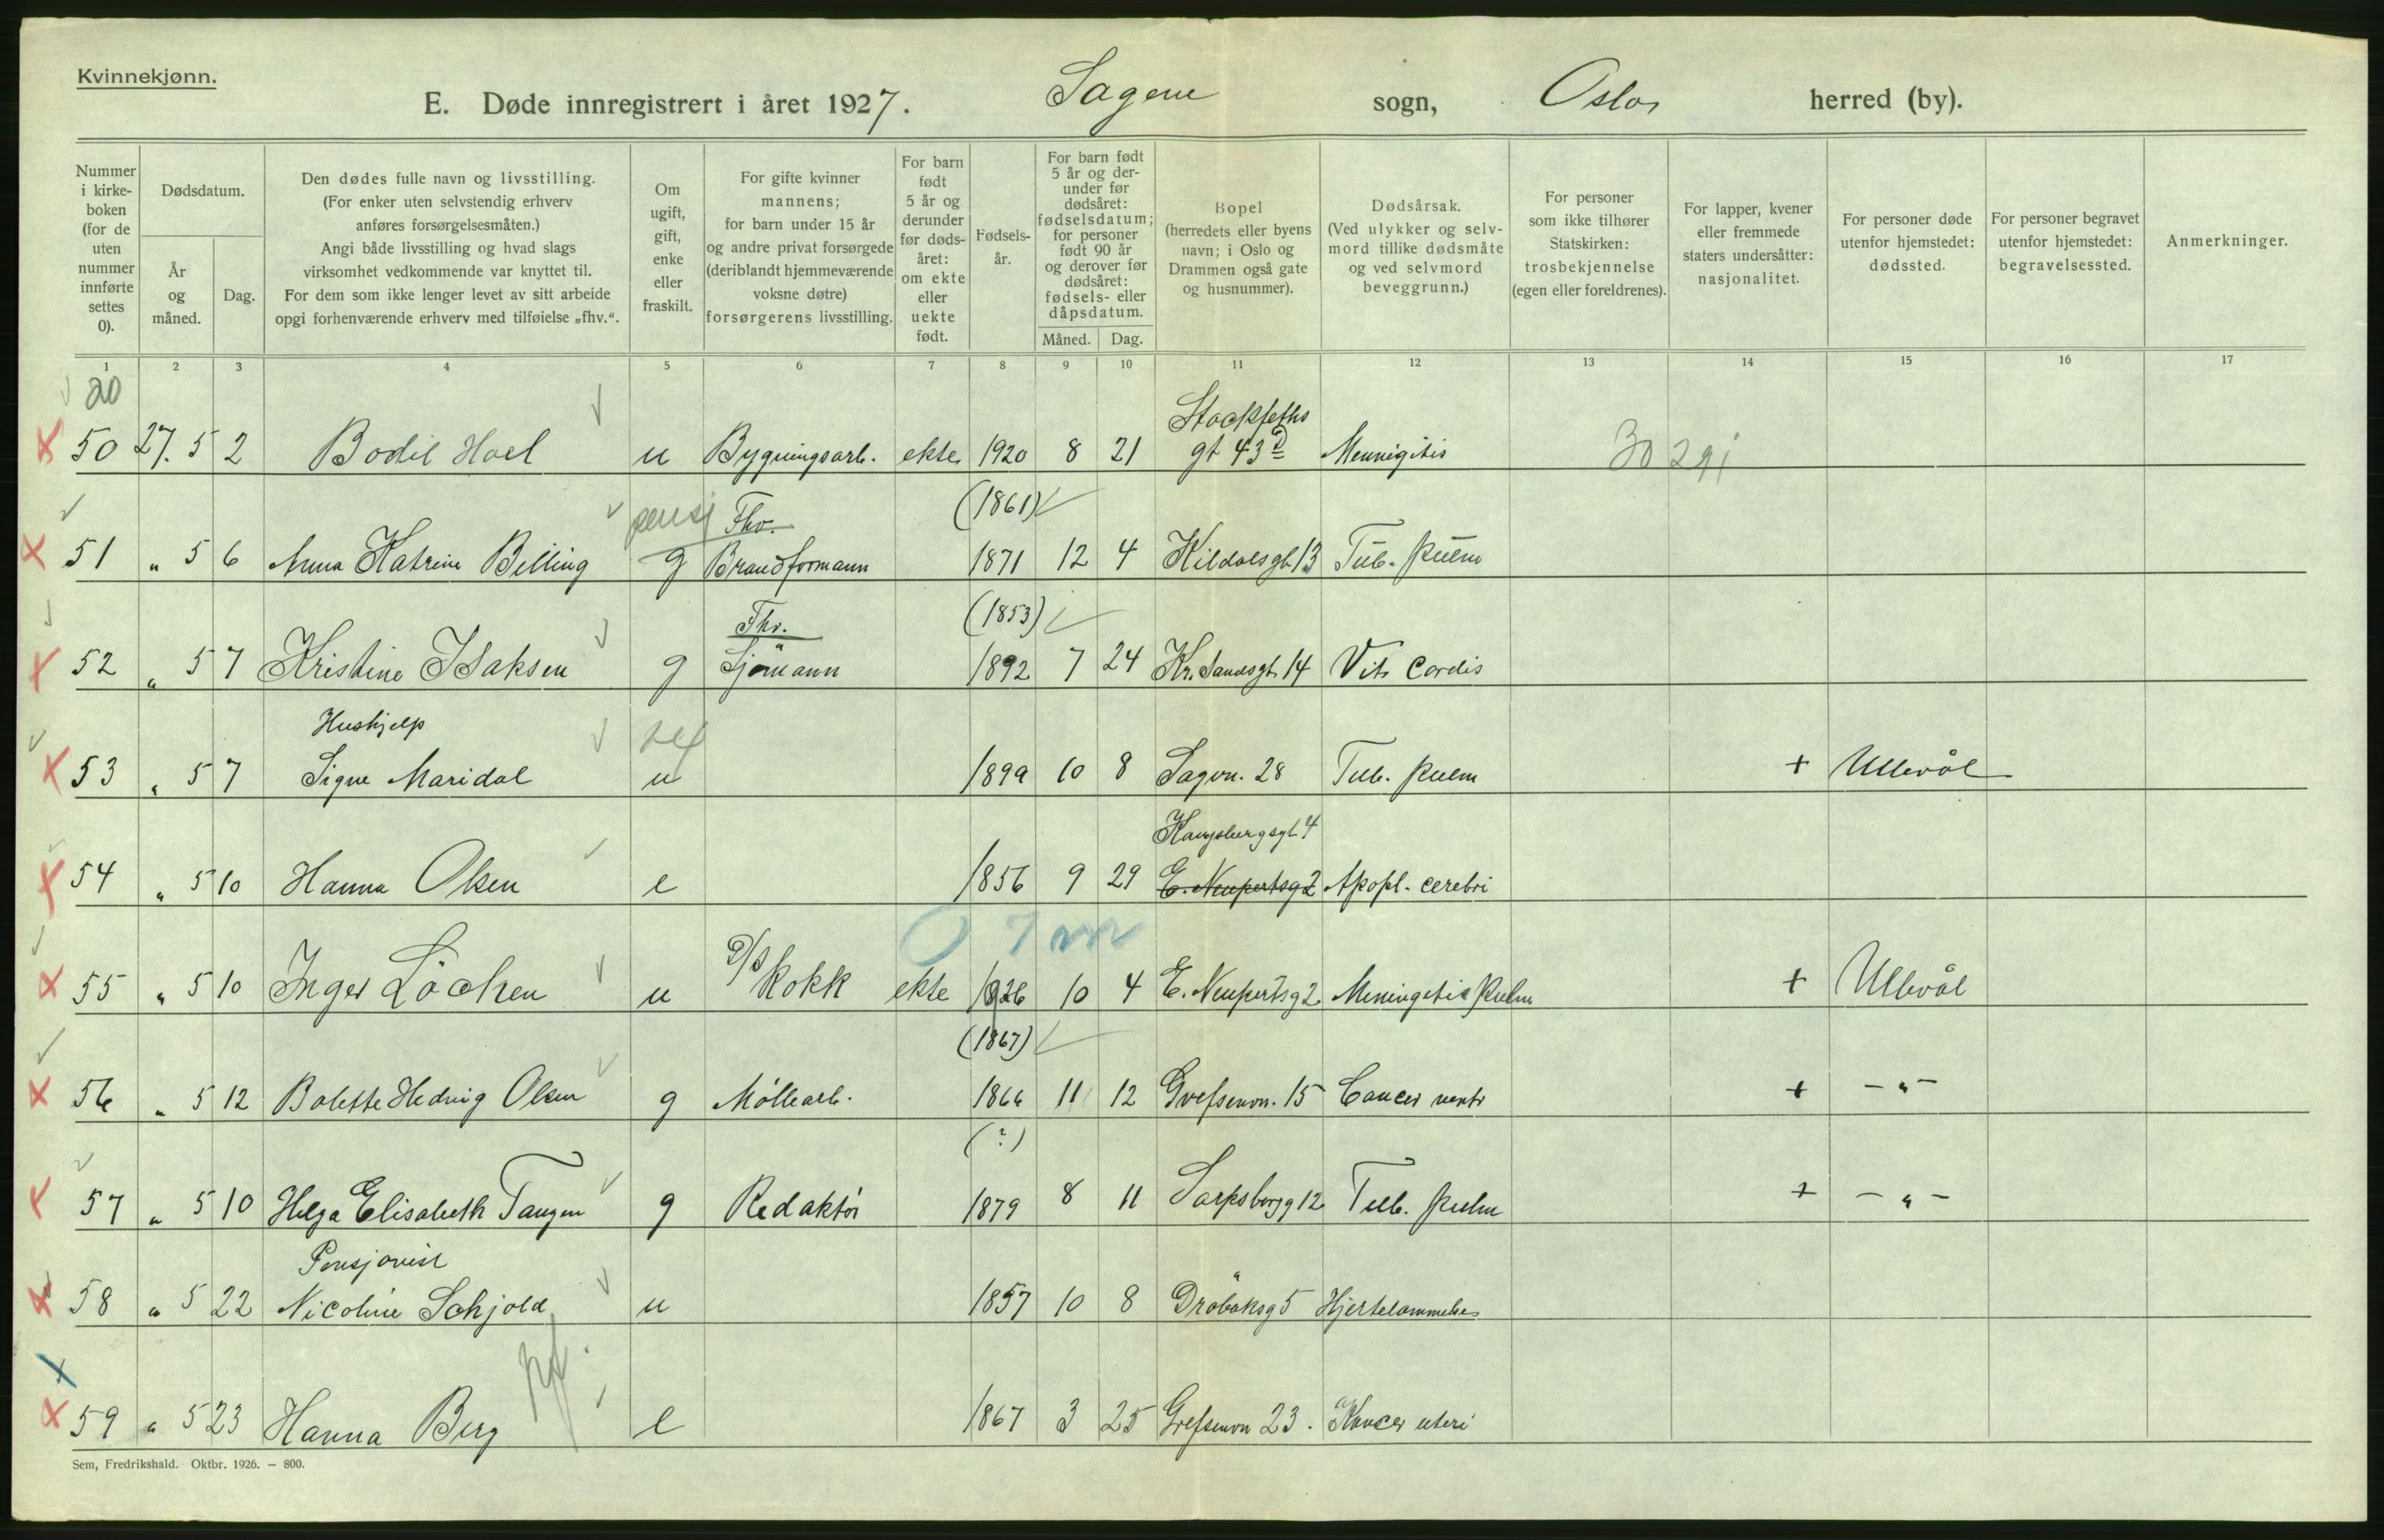 Kvinnekjønn.
E. Døde innregistrert i året 1927. Sagene sogn, Oslo, herred (by).
Nummer i kirke-boken (for de uten nummer innførte settes 0).
Dødsdatum.
År og måned.
Dag.
Den dødes fulle navn og livsstilling.
(For enker uten selvstendig erhverv
anføres forsørgelsesmåten.)
Angi både livsstilling og hvad slags
virksomhet vedkommende var knyttet til.
For dem som ikke lenger levet av sitt arbeide
opgi forhenværende erhverv med tilføielse „fhv.“.
Om ugift, gift, enke eller fraskilt.
For gifte kvinner
mannens;
for barn under 15 år
og andre privat forsørgede
(deriblandt hjemmeværende
voksne døtre)
forsørgerens livsstilling.
For barn født 5 år og derunder før døds-året: om ekte eller uekte født.
Fødsels-år.
For barn født
5 år og der-
under før
dødsåret:
fødselsdatum;
for personer
født 90 år
og derover før
dødsåret:
fødsels- eller
dåpsdatum.
Måned. Dag.
Bopel
(herredets eller byens
navn; i Oslo og
Drammen også gate
og husnummer).
Dødsårsak.
(Ved ulykker og selv-
mord tillike dødsmåte
og ved selvmord
beveggrunn.)
For personer
som ikke tilhører
Statskirken:
trosbekjennelse
(egen eller foreldrenes).
For lapper, kvener
eller fremmede
staters undersåtter:
nasjonalitet.
For personer døde
utenfor hjemstedet:
dødssted.
For personer begravet
utenfor hjemstedet:
begravelsessted.
Anmerkninger.
1 2 3 4 5 6 7 8 9 10 11 12 13 14 15 16 17
20
Stockfleths
50 27. 5 2 Bodil Hoel u Bygningsarb. ekte 1920 8 21 gt 43 D Mennigitis
pensj Fhv. (1861)
51 " 5 6 Anna Katrine Billing g Brandformann 1871 12 4 Kildalsgt 13 Tub. pulm
Fhv. (1853)
52 " 5 7 Kristine Isaksen g Sjømann 1892 7 24 Kr.sandsgt 14 Vit. Cordis
Hushjelp
53 " 5 7 Signe Maridal u 1899 10 8 Sagvn. 28 Tub. pulm + Ullevål
Kongsberggt 4
54 " 5 10 Hanna Olsen e 1856 9 29 E. Neupertsg 2 Apopl. cerebri
0 7 m
55 " 5 10 Inger Löchen u D/S Kokk ekte 1926 10 4 E. Neupertsg 2 Meningitis pulm + Ullevål
(1867)
56 " 5 12 Bolette Hedvig Olsen g Møllearb. 1866 11 12 Grefsenvn. 15 Cancer ventr + - " -
(?)
57 " 5 10 Helga Elisabeth Tangen g Redaktør 1879 8 11 Sarpsborgg 12 Tub. pulm + - " -
Pensjonist
58 " 5 22 Nicoline Schjold u 1857 10 8 Drøbaksg 5 Hjertelammelse
59 " 5 23 Hanna Berg e 1867 3 25 Grefsenvn 23. Kancer uteri
Sem, Fredrikshald. Oktbr. 1926. — 800.